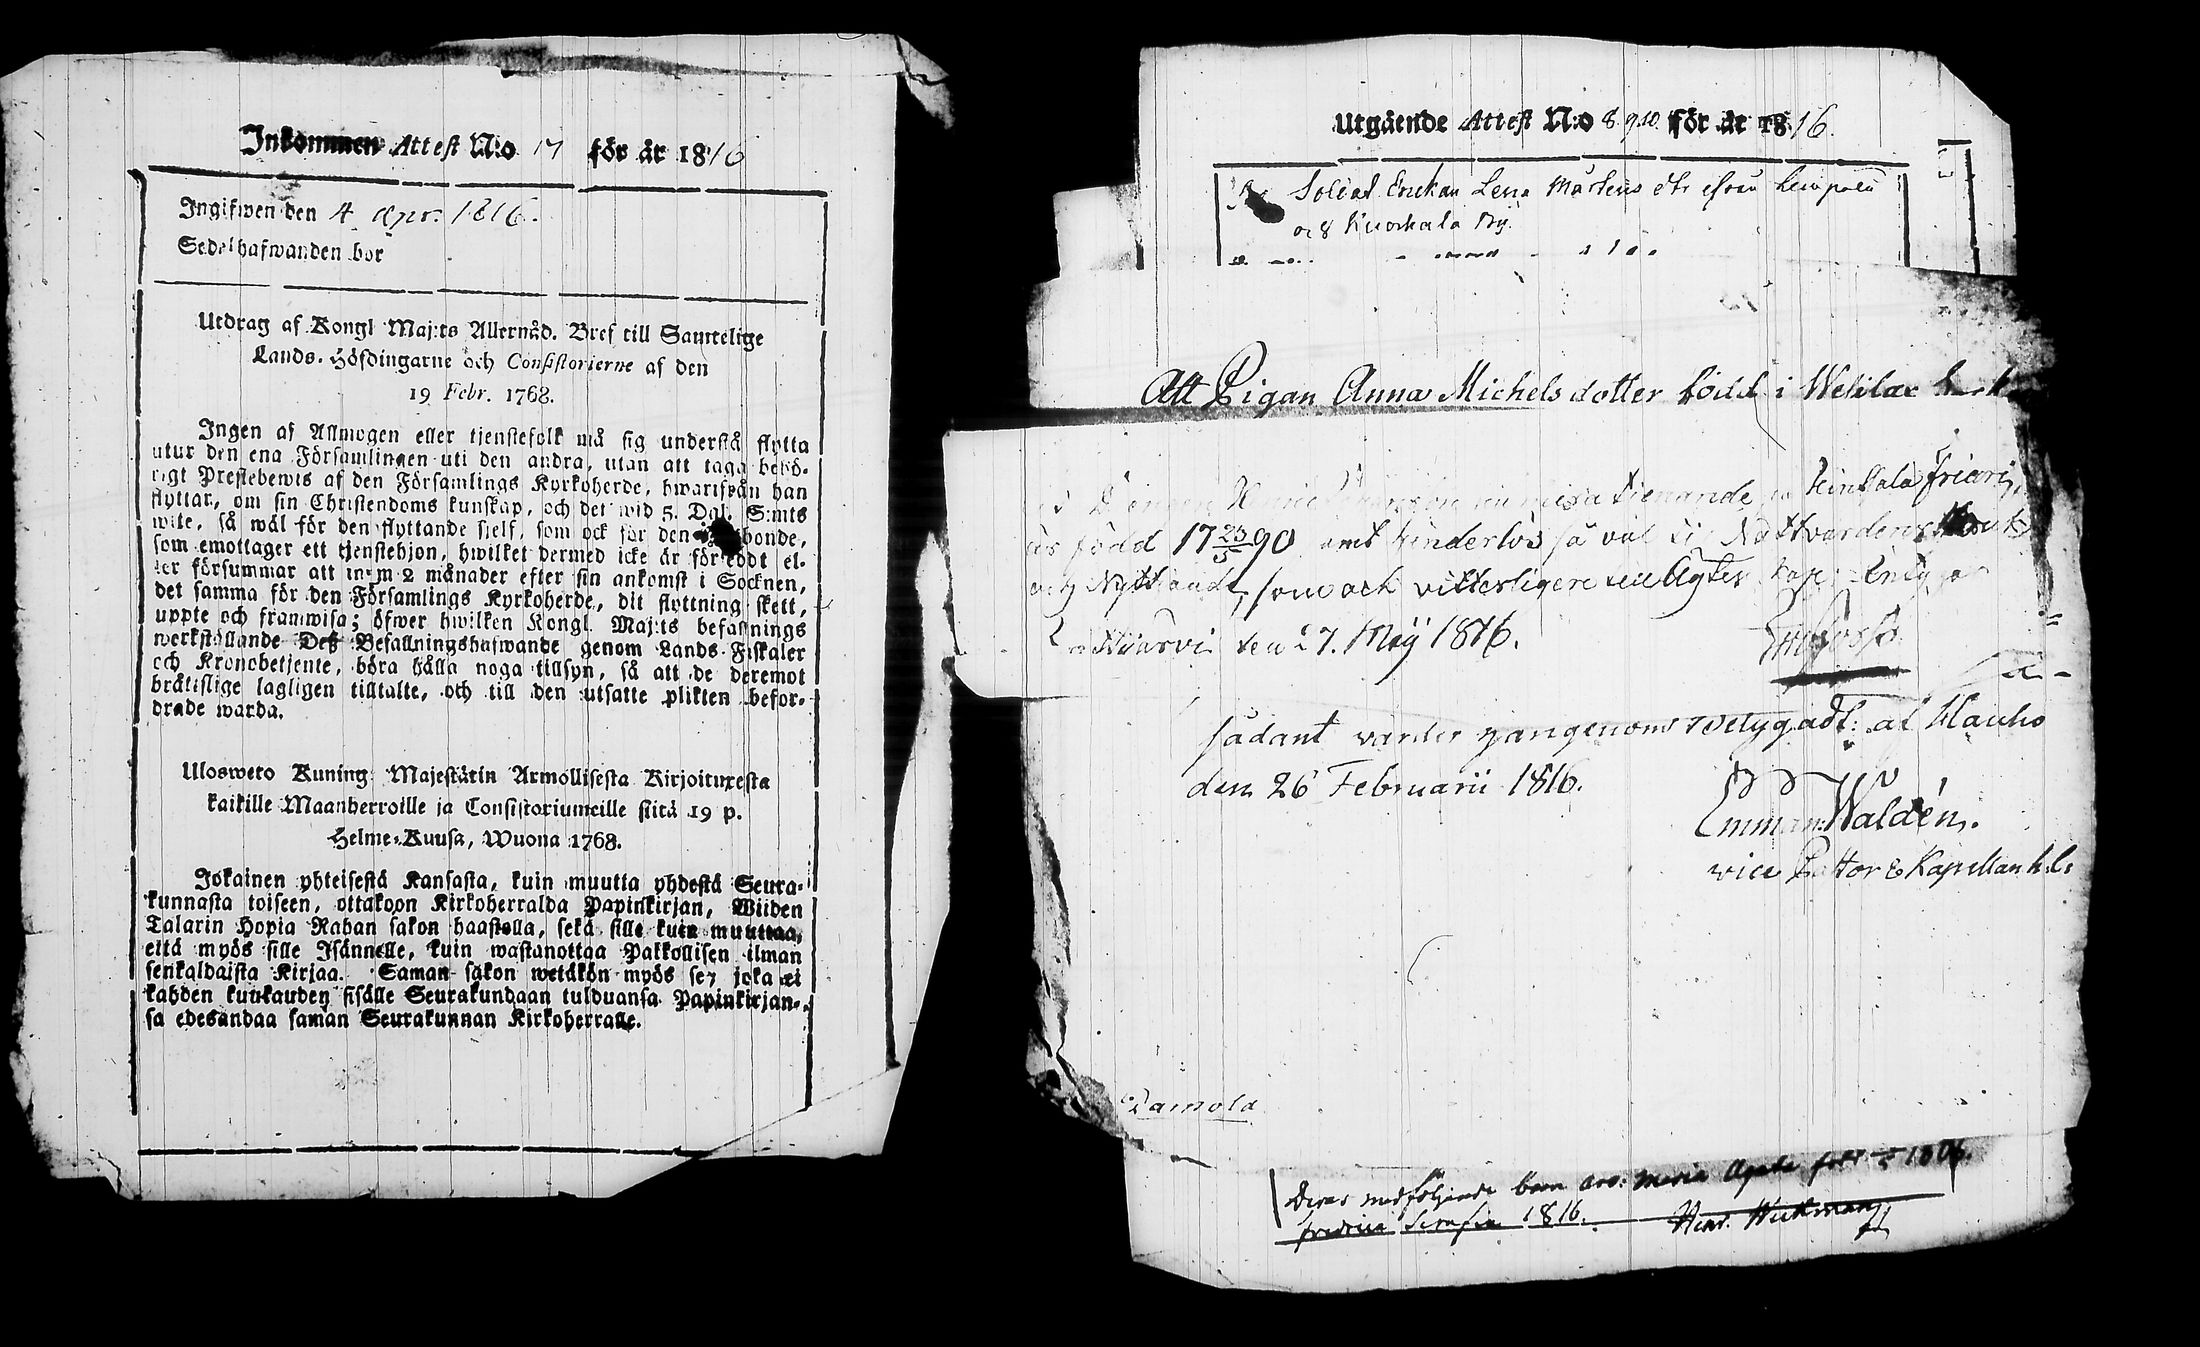 Inkommen Attest N:o 17 för år 1816
Ingifwen den 4 apr. 1816.
Sedelhafwanden bor
Utdrag af Kongl Maj:ts Allernåd. Bref till Samtelige
Lands-Höfdingarne och Consistorierne af den
19 Febr. 1768.
Ingen af Allmogen eller tjenstefolk må sig understå flytta
utur den ena Församlingen uti den andra, utan att taga behö-
rigt Prestebewis af den Församlings Kyrkoherde, hwarifrån han
flyttar, om sin Christendoms kunskap, och det wid 5. Dal. S:mts
wite, så wäl för den flyttande sjelf, som ock för den bonde,
som emottager ett tjenstehjon, hwilket dermed icke är försedt el-
ler försummar att inom 2 månader efter sin ankomst i Socknen,
det samma för den Församlings Kyrkoherde, dit flyttning skett,
uppte och framwisa; öfwer hwilken Kongl. Maj:ts befallnings
werkställande Deß Befallningshafwande genom Lands-Fiskaler
och Kronobetjente, böra hålla noga tillsyn, så att de deremot
bråtislige lagligen tilltalte, och till den utsatte plikten befor-
drade warda.
Ulosweto Kuning: Majestätin Armollisesta Kirjoituxesta
kaikille Maanherroille ja Consistoriumeille siitä 19 p.
Helme-Kuusa, Wuona 1768.
Jokainen yhteisestä Kansasta, kuin muutta yhdestä Seura-
kunnasta toiseen, ottakoon Kirkoherralda Papinkirjan, Wiiden
Talarin Hopia Rahan sakon haastolla, sekä sille kuin muuttaa,
että myös sille Isännelle, kuin wastanottaa Palkollisen ilman
senkaldaista Kirjaa. Saman sakon wetäkön myös se, joka ei
kahden kuukauden sisälle Seurakundaan tulduansa Papinkirjan-
sa edesandaa saman Seurakunnan Kirkoherralle.
Utgående Attest N:o 8 9 10 för år 1816.
Soldat Enckan Lena Mårtens dtr ifrån Lempälä
och Kuokkala By.
Att Pigan Anna Michels dotter född i Wesilax
Drengen tienande
är född 17 23/5 90 samt hinderlös så väl til Nattvardens
Nyttiande, som och vitterligere till Ägtenskap
den 27. Maij 1816.
sådant varder härigenom betygadt: af Hauho
den 26 Februarii 1816.
Emman: Waldén.
vice Pastor & Kapellan
Deras medföljande barn äro: Maria Agata född 1806.
Fredrica Serafia 1816. Henr. Wickman